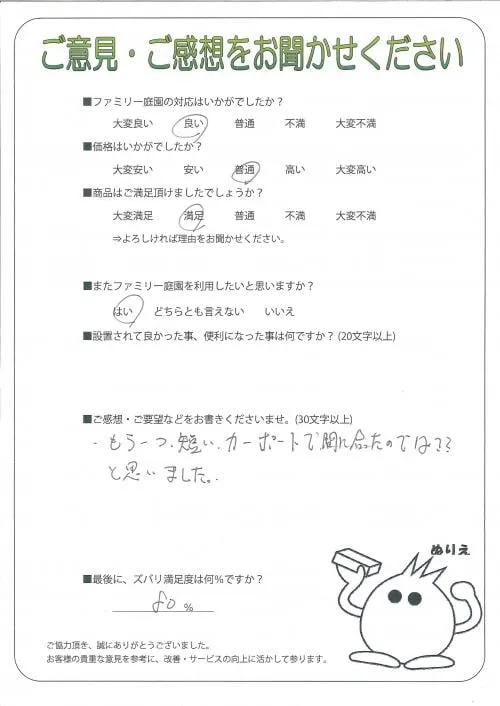 ご意見・ご感想をお聞かせください
■ファミリー庭園の対応はいかがでしたか?
大変良い 良い 普通 不満 大変不満
■価格はいかがでしたか?
大変安い 安い 普通 高い 大変高い
■商品はご満足頂けましたでしょうか?
大変満足 満足 普通 不満 大変不満
⇒よろしければ理由をお聞かせください。
■またファミリー庭園を利用したいと思いますか?
はい どちらとも言えない いいえ
■設置されて良かった事、便利になった事は何ですか?(20文字以上)
■ご感想・ご要望などをお書きくださいませ。(30文字以上)
・もう一つ、短い、カーポートで間に合たのでは??
と思いました。
ぬりえ
■最後に、ズバリ満足度は何%ですか?
80 %
ご協力頂き、誠にありがとうございました。
お客様の貴重な意見を参考に、改善・サービスの向上に活かして参ります。